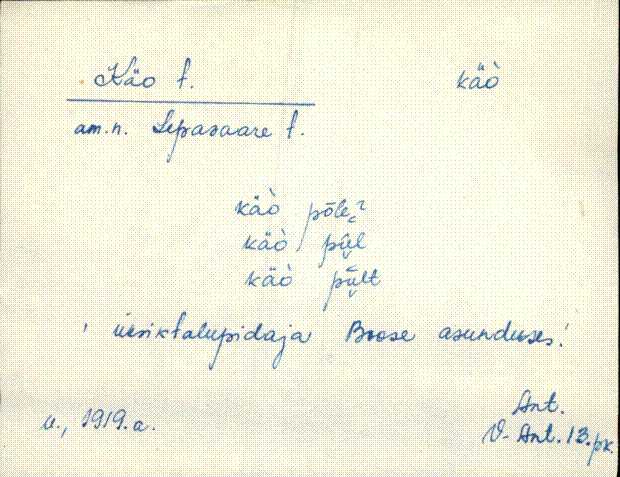 Käo t. käò
am.n. Lepasaare t.
käò põle̬ʔ
käò pṳl
käò pṳ̄lt
' üksiktalupidaja Boose asunduses.'
u., 1919. a. Ant.
V-Ant. 13. pk.